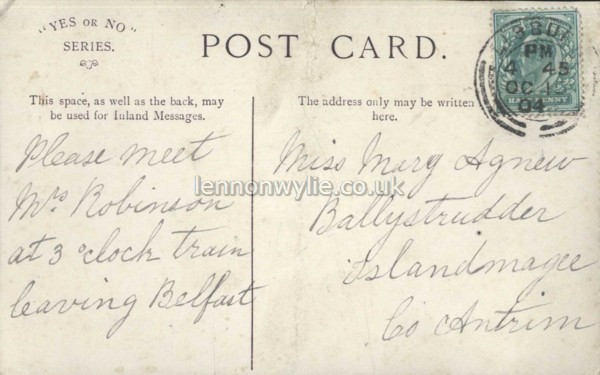 "YES OR NO"
SERIES.
POST CARD.
PM
4 45
OC 1
04
HALFPENNY
This space, as well as the back, may
be used for Inland Messages.
The address only may be written
here.
Please meet
Mrs Robinson
at 3 o'clock train
leaving Belfast
Miss Mary Agnew
Ballystrudder
Islandmagee
Co Antrim
lennonwylie.co.uk